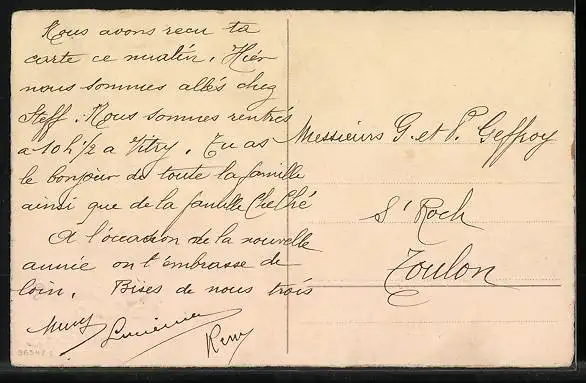 Nous avons recu ta
carte ce matin. Hier
nous sommes allés chez
Steff. Nous sommes rentrés
a 10h 1/2 a Vitry. Tu as
le bonjour de toute la famille
ainsi que de la famille
A l'occasion de la nouvelle
année on t'embrasse de
loin. Bises de nous trois
Lucienne
Remy
Messieurs G. et P. Geffroy
St Roch
Toulon